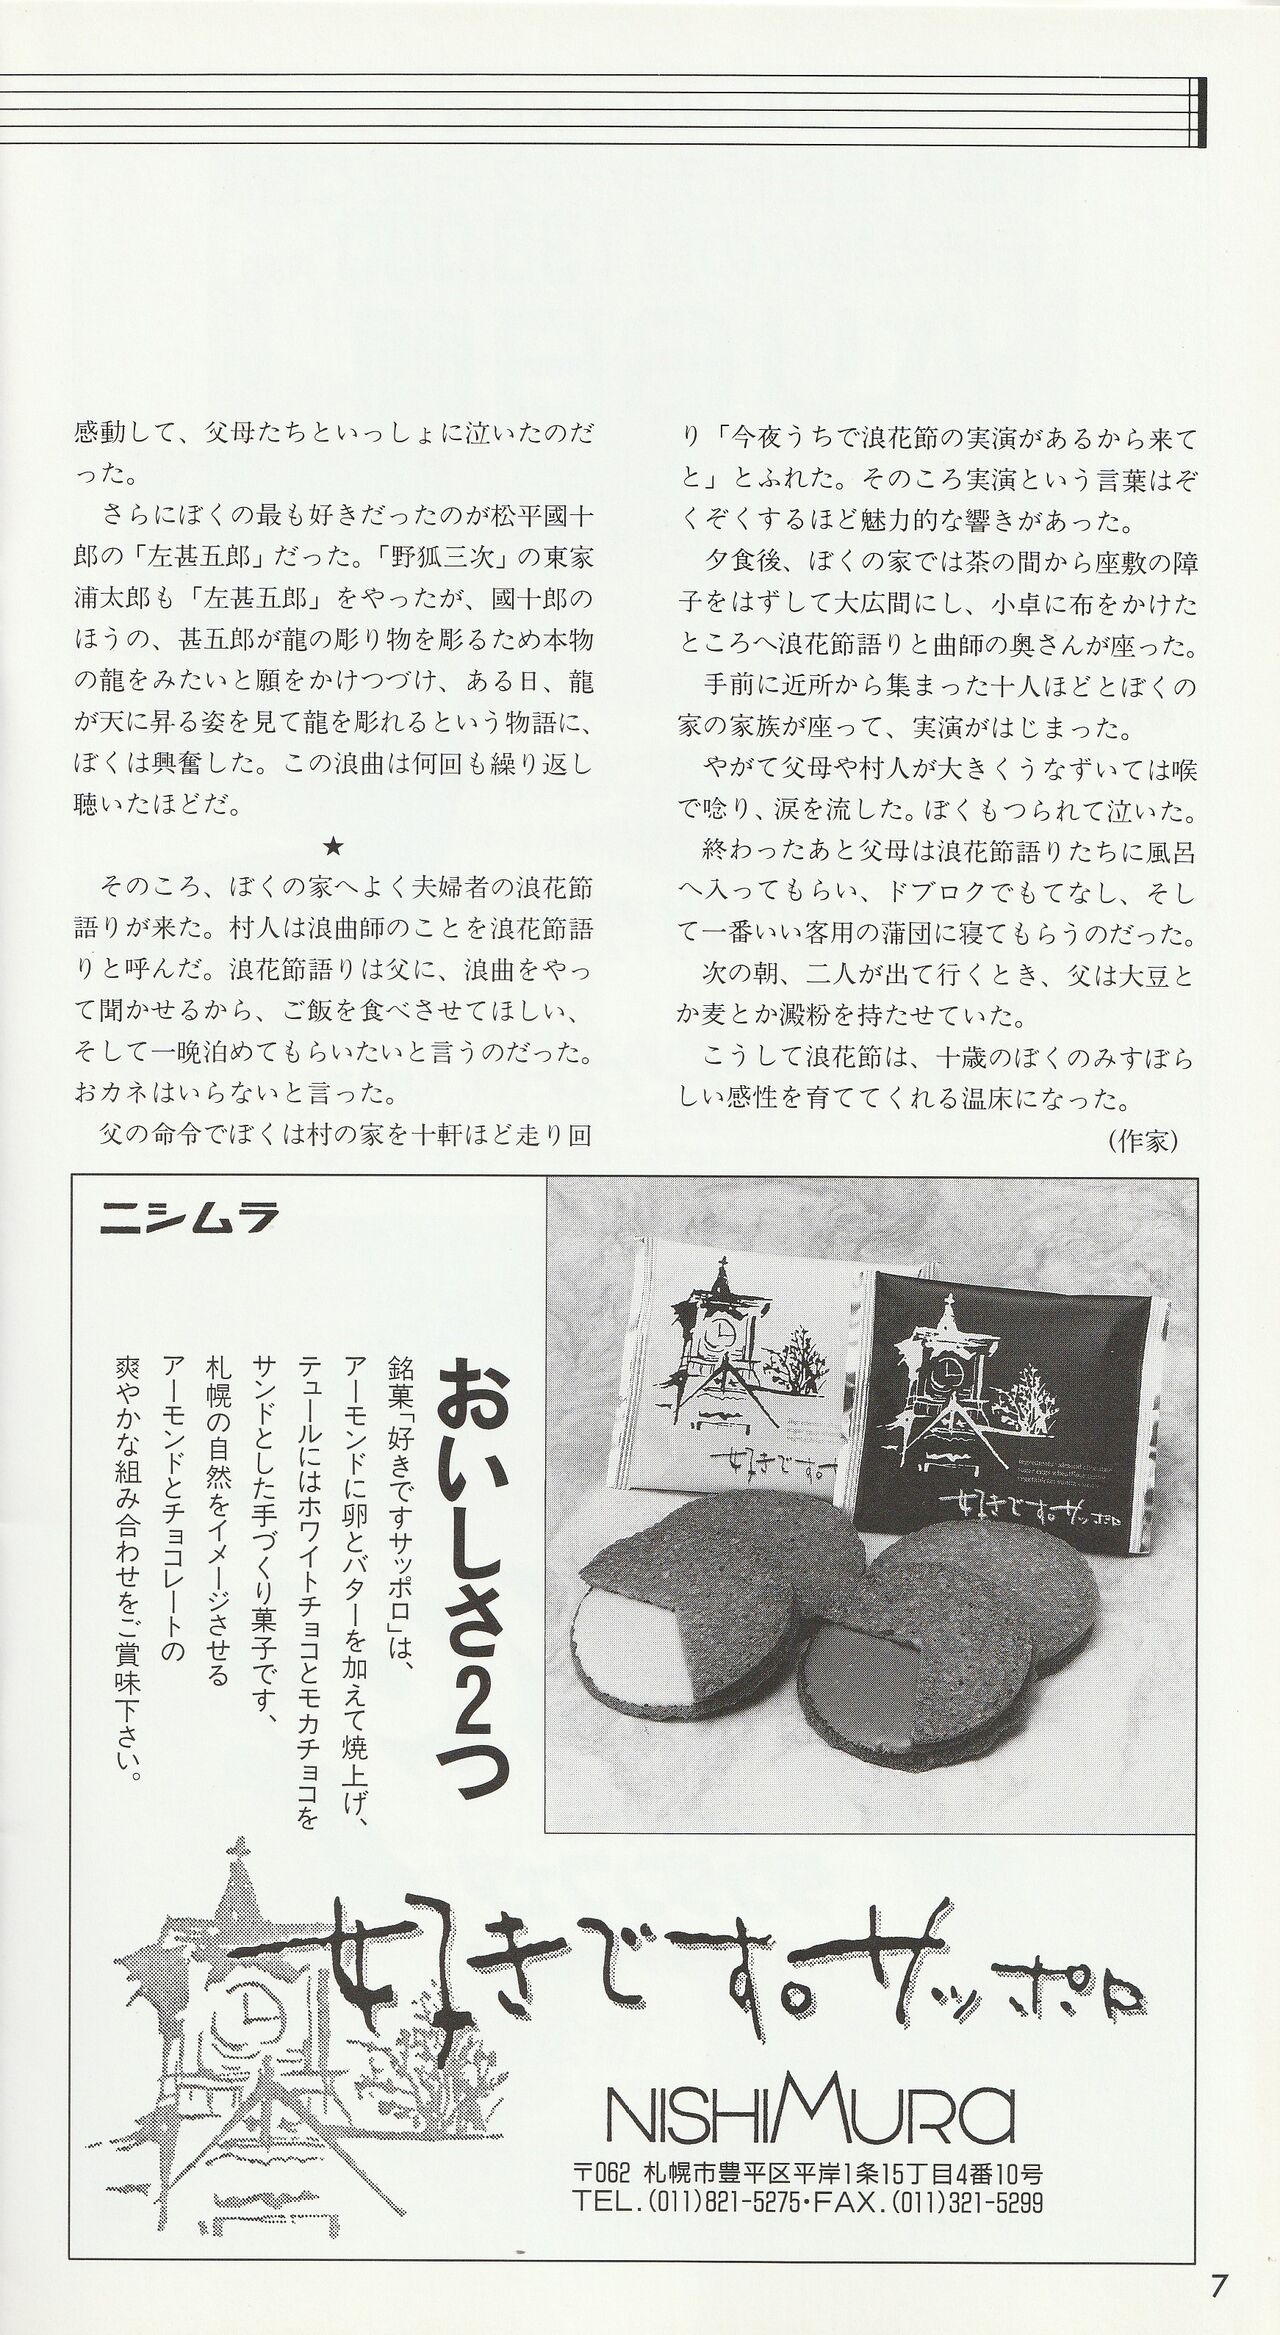 感動して、父母たちといっしょに泣いたのだ
った。
さらにぼくの最も好きだったのが松平國十
郎の「左甚五郎」だった。「野狐三次」の東家
浦太郎も「左甚五郎」をやったが、國十郎の
ほうの、甚五郎が龍の彫り物を彫るため本物
の龍をみたいと願をかけつづけ、ある日、龍
が天に昇る姿を見て龍を彫れるという物語に、
ぼくは興奮した。この浪曲は何回も繰り返し
聴いたほどだ。
★
そのころ、ぼくの家へよく夫婦者の浪花節
語りが来た。村人は浪曲師のことを浪花節語
りと呼んだ。浪花節語りは父に、浪曲をやっ
て聞かせるから、ご飯を食べさせてほしい、
そして一晩泊めてもらいたいと言うのだった。
おカネはいらないと言った。
父の命令でぼくは村の家を十軒ほど走り回
り「今夜うちで浪花節の実演があるから来て
と」とふれた。そのころ実演という言葉はぞ
くぞくするほど魅力的な響きがあった。
夕食後、ぼくの家では茶の間から座敷の障
子をはずして大広間にし、小卓に布をかけた
ところへ浪花節語りと曲師の奥さんが座った。
手前に近所から集まった十人ほどとぼくの
家の家族が座って、実演がはじまった。
やがて父母や村人が大きくうなずいては喉
で唸り、涙を流した。ぼくもつられて泣いた。
終わったあと父母は浪花節語りたちに風呂
へ入ってもらい、ドブロクでもてなし、そし
て一番いい客用の蒲団に寝てもらうのだった。
次の朝、二人が出て行くとき、父は大豆と
か麦とか澱粉を持たせていた。
こうして浪花節は、十歳のぼくのみすぼら
しい感性を育ててくれる温床になった。
(作家)
ニシムラ
おいしさ2つ
銘菓「好きですサッポロ」は、
アーモンドに卵とバターを加えて焼上げ、
テュールにはホワイトチョコとモカチョコを
サンドとした手づくり菓子です、
札幌の自然をイメージさせる
アーモンドとチョコレートの
爽やかな組み合わせをご賞味下さい。
好きですサッポ
好きです。サッポロ
好きです。サッポロ
NISHIMURA
〒062 札幌市豊平区平岸1条15丁目4番10号
TEL.(011)821-5275・FAX.(011)321-5299
7